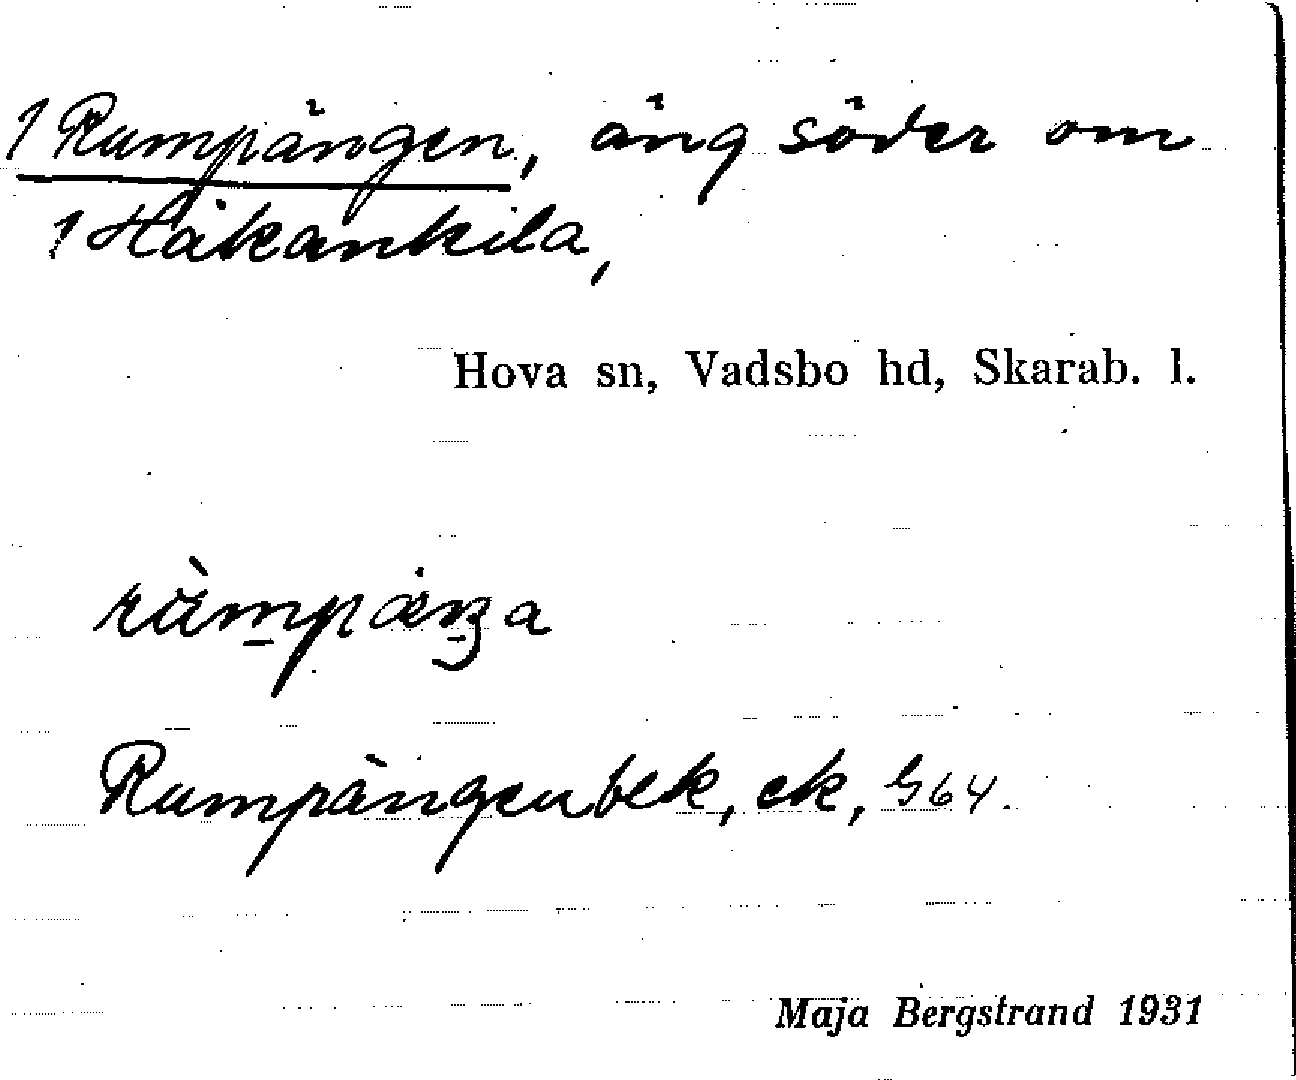 1 Rumpängen, äng söder om
1 Håkankila,
Hova sn, Vadsbo hd, Skarab. l.
Rumpängen bek, ek, G64.
Maja Bergstrand 1931